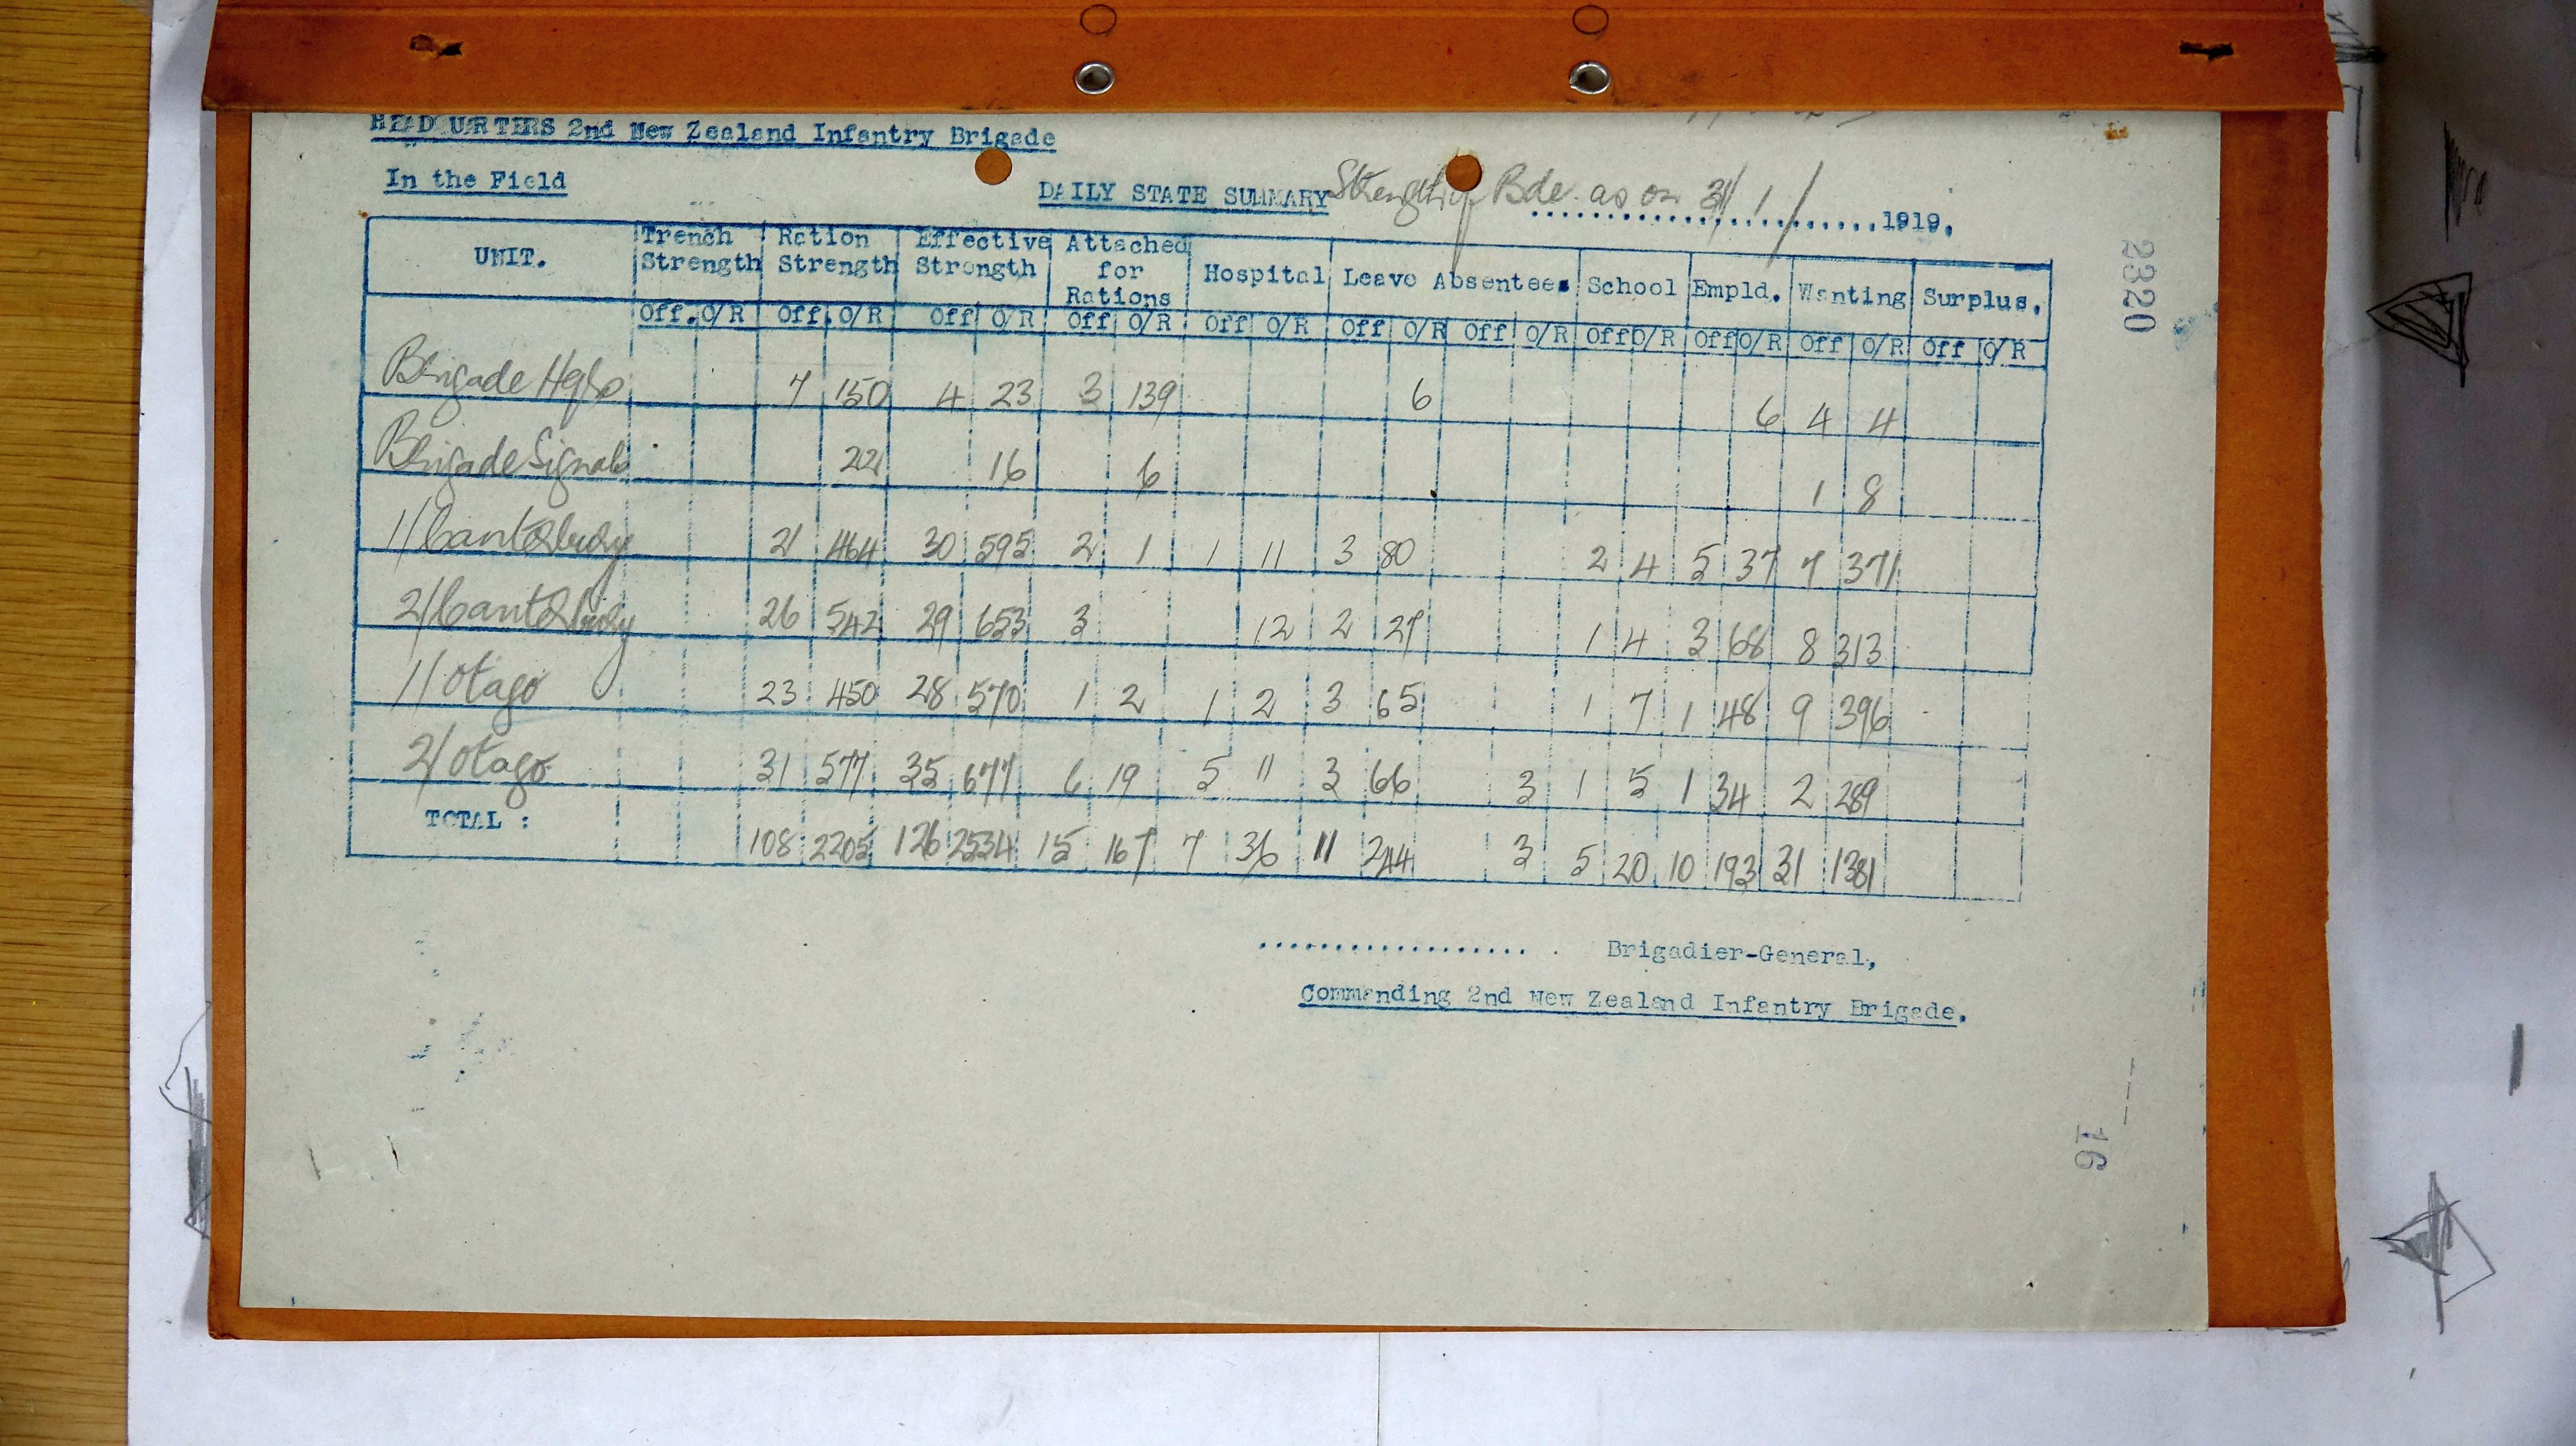 HEADQUARTERS 2nd New Zealand Infantry Brigade
In the Field
DAILY STATE SUMMARY Strength of Bde. as on 31/1/ 1919.
UNIT. Trench Strength Ration Strength Effective Strength Attached for Rations Hospital Leave Absentees School Empld. Wanting Surplus.
Off. O/R Off. O/R Off O/R Off O/R Off O/R Off O/R Off O/R Off O/R Off O/R Off O/R Off O/R
Brigade Hqrs 7 150 4 23 3 139 6 6 4 4
Brigade Signals 22 16 6 1 8
1/Canterbury 21 464 30 595 2 1 1 11 3 80 2 4 5 37 7 371
2/Canterbury 26 542 29 653 3 12 2 27 1 4 3 68 8 313
1/Otago 23 450 28 570 1 2 1 2 3 65 1 7 1 48 9 396
2/Otago 31 577 35 677 6 19 5 11 3 66 3 1 5 1 34 2 289
TOTAL : 108 2205 126 2534 15 167 7 36 11 244 3 5 20 10 193 31 1381
.................. . Brigadier-General,
Commanding 2nd New Zealand Infantry Brigade.
2320
16